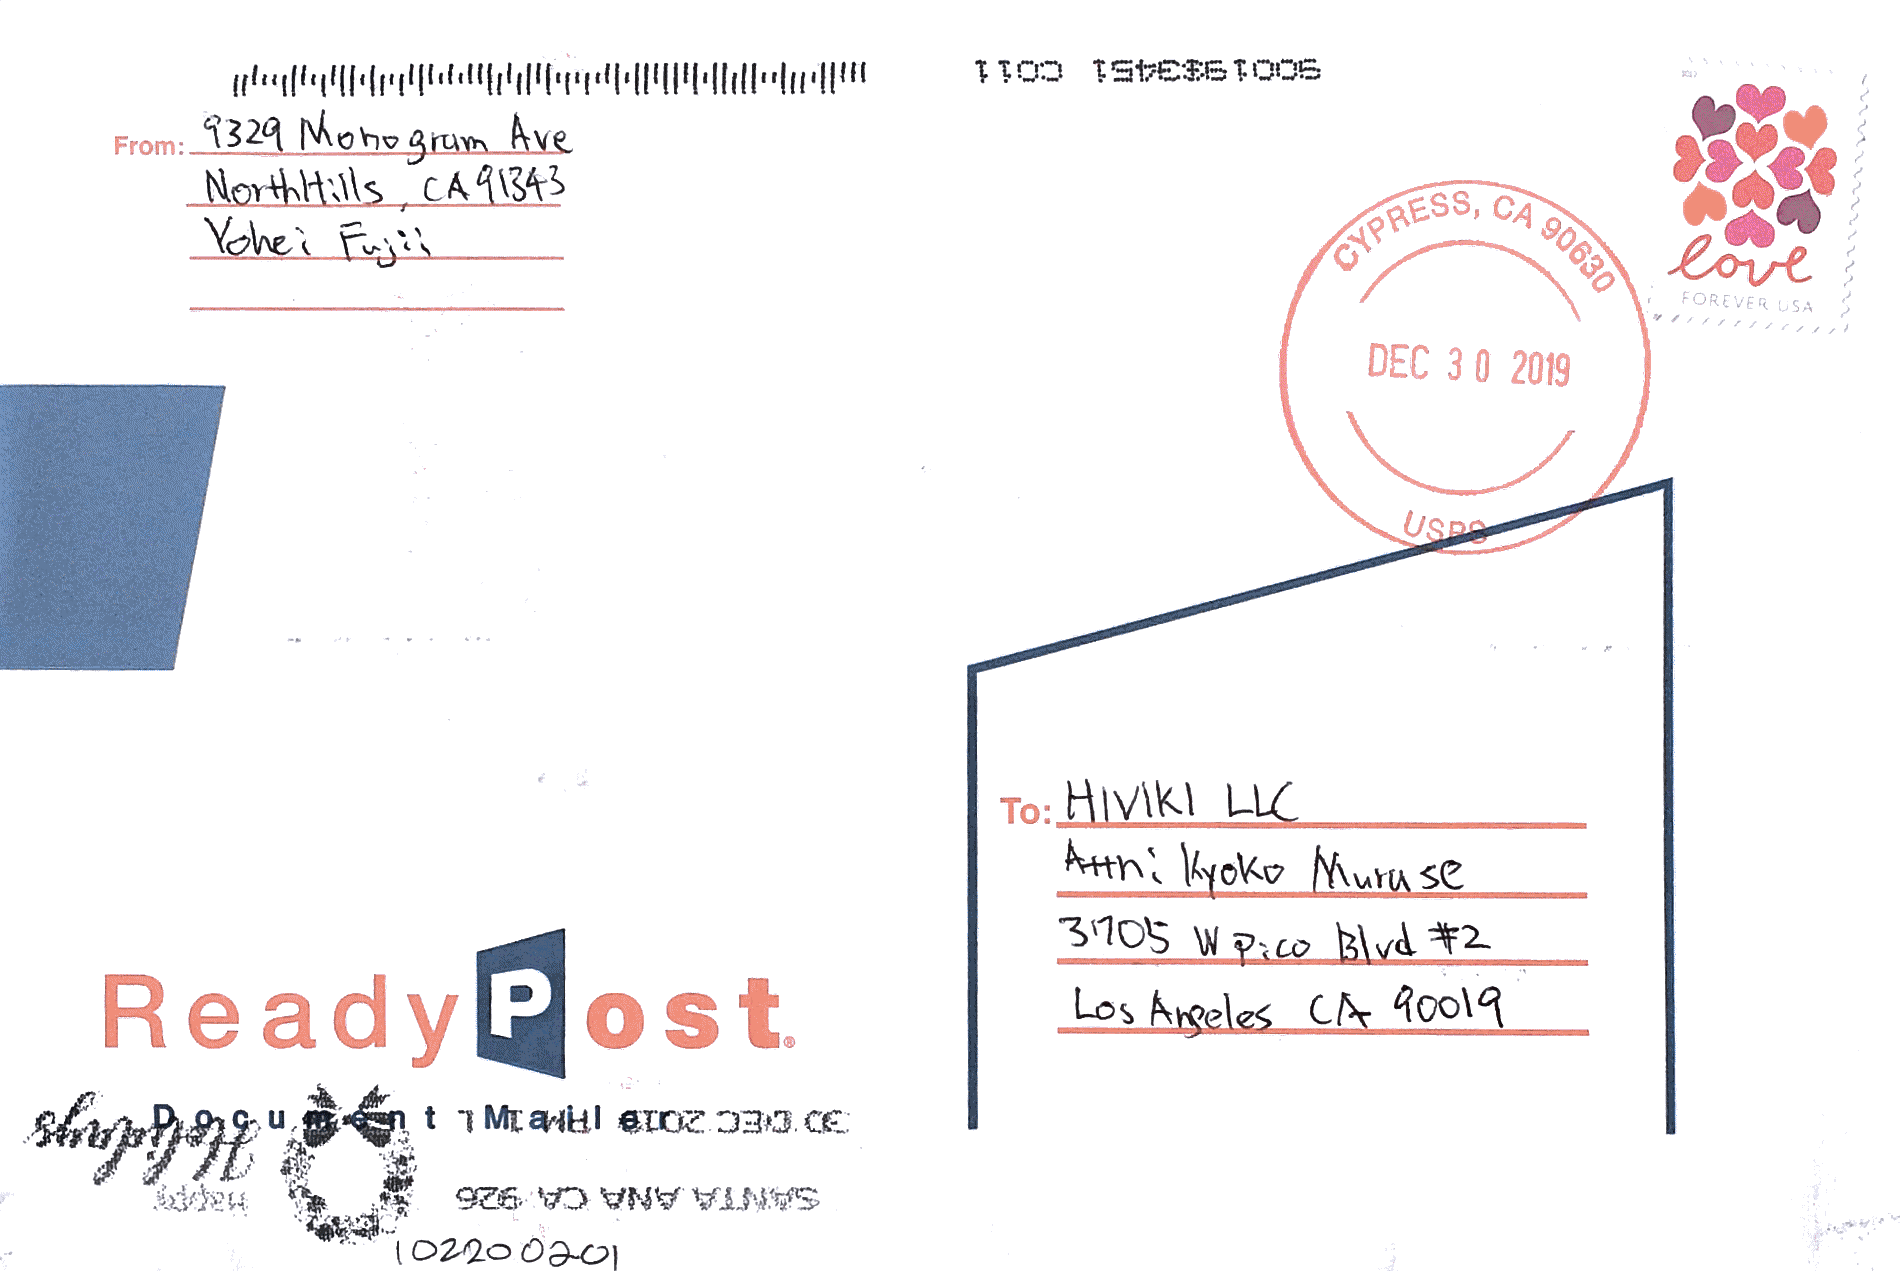 From: 9329 Monogram Ave
North Hills, CA 91343
Yohei Fujii
CYPRESS, CA 90630
DEC 30 2019
USPS
love
FOREVER USA
To: HIVIKI LLC
Attn: Kyoko Murase
3705 W Pico Blvd #2
Los Angeles CA 90019
ReadyPost®
Document Mailer
30 DEC 2019 PM 1 L
SANTA ANA CA 926
Happy
Holidays
102200201